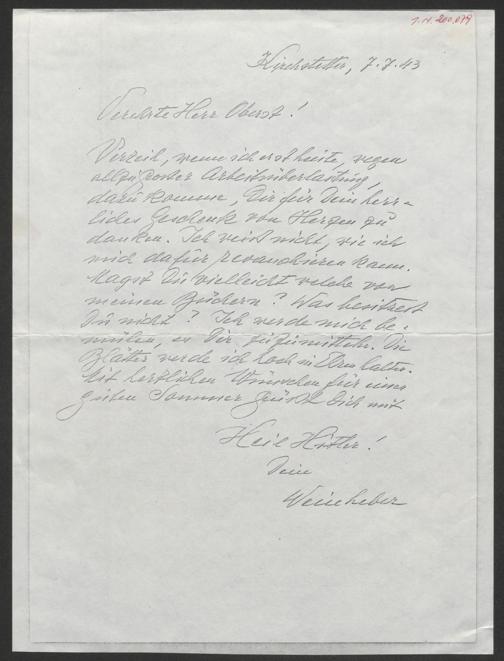 J.N. 200.079
Kirchstetten, 7.7.43
Verehrter Herr Oberst!
Verzeih, wenn ich erst heute, wegen
allzu großer Arbeitsüberlastung,
dazu komme, Dir für Dein herr=
liches Geschenk von Herzen zu
danken. Ich weiß nicht, wie ich
mich dafür revanchieren kann.
Magst Du vielleicht welche von
meinen Büchern? Was besitzest
Du nicht? Ich werde mich be=
mühen, es Dir zu übermitteln. Die
Blätter werde ich hoch in Ehren halten.
Mit herzlichen Wünschen für einen
guten Sommer grüßt Dich mit
Heil Hitler!
Dein
Weinheber